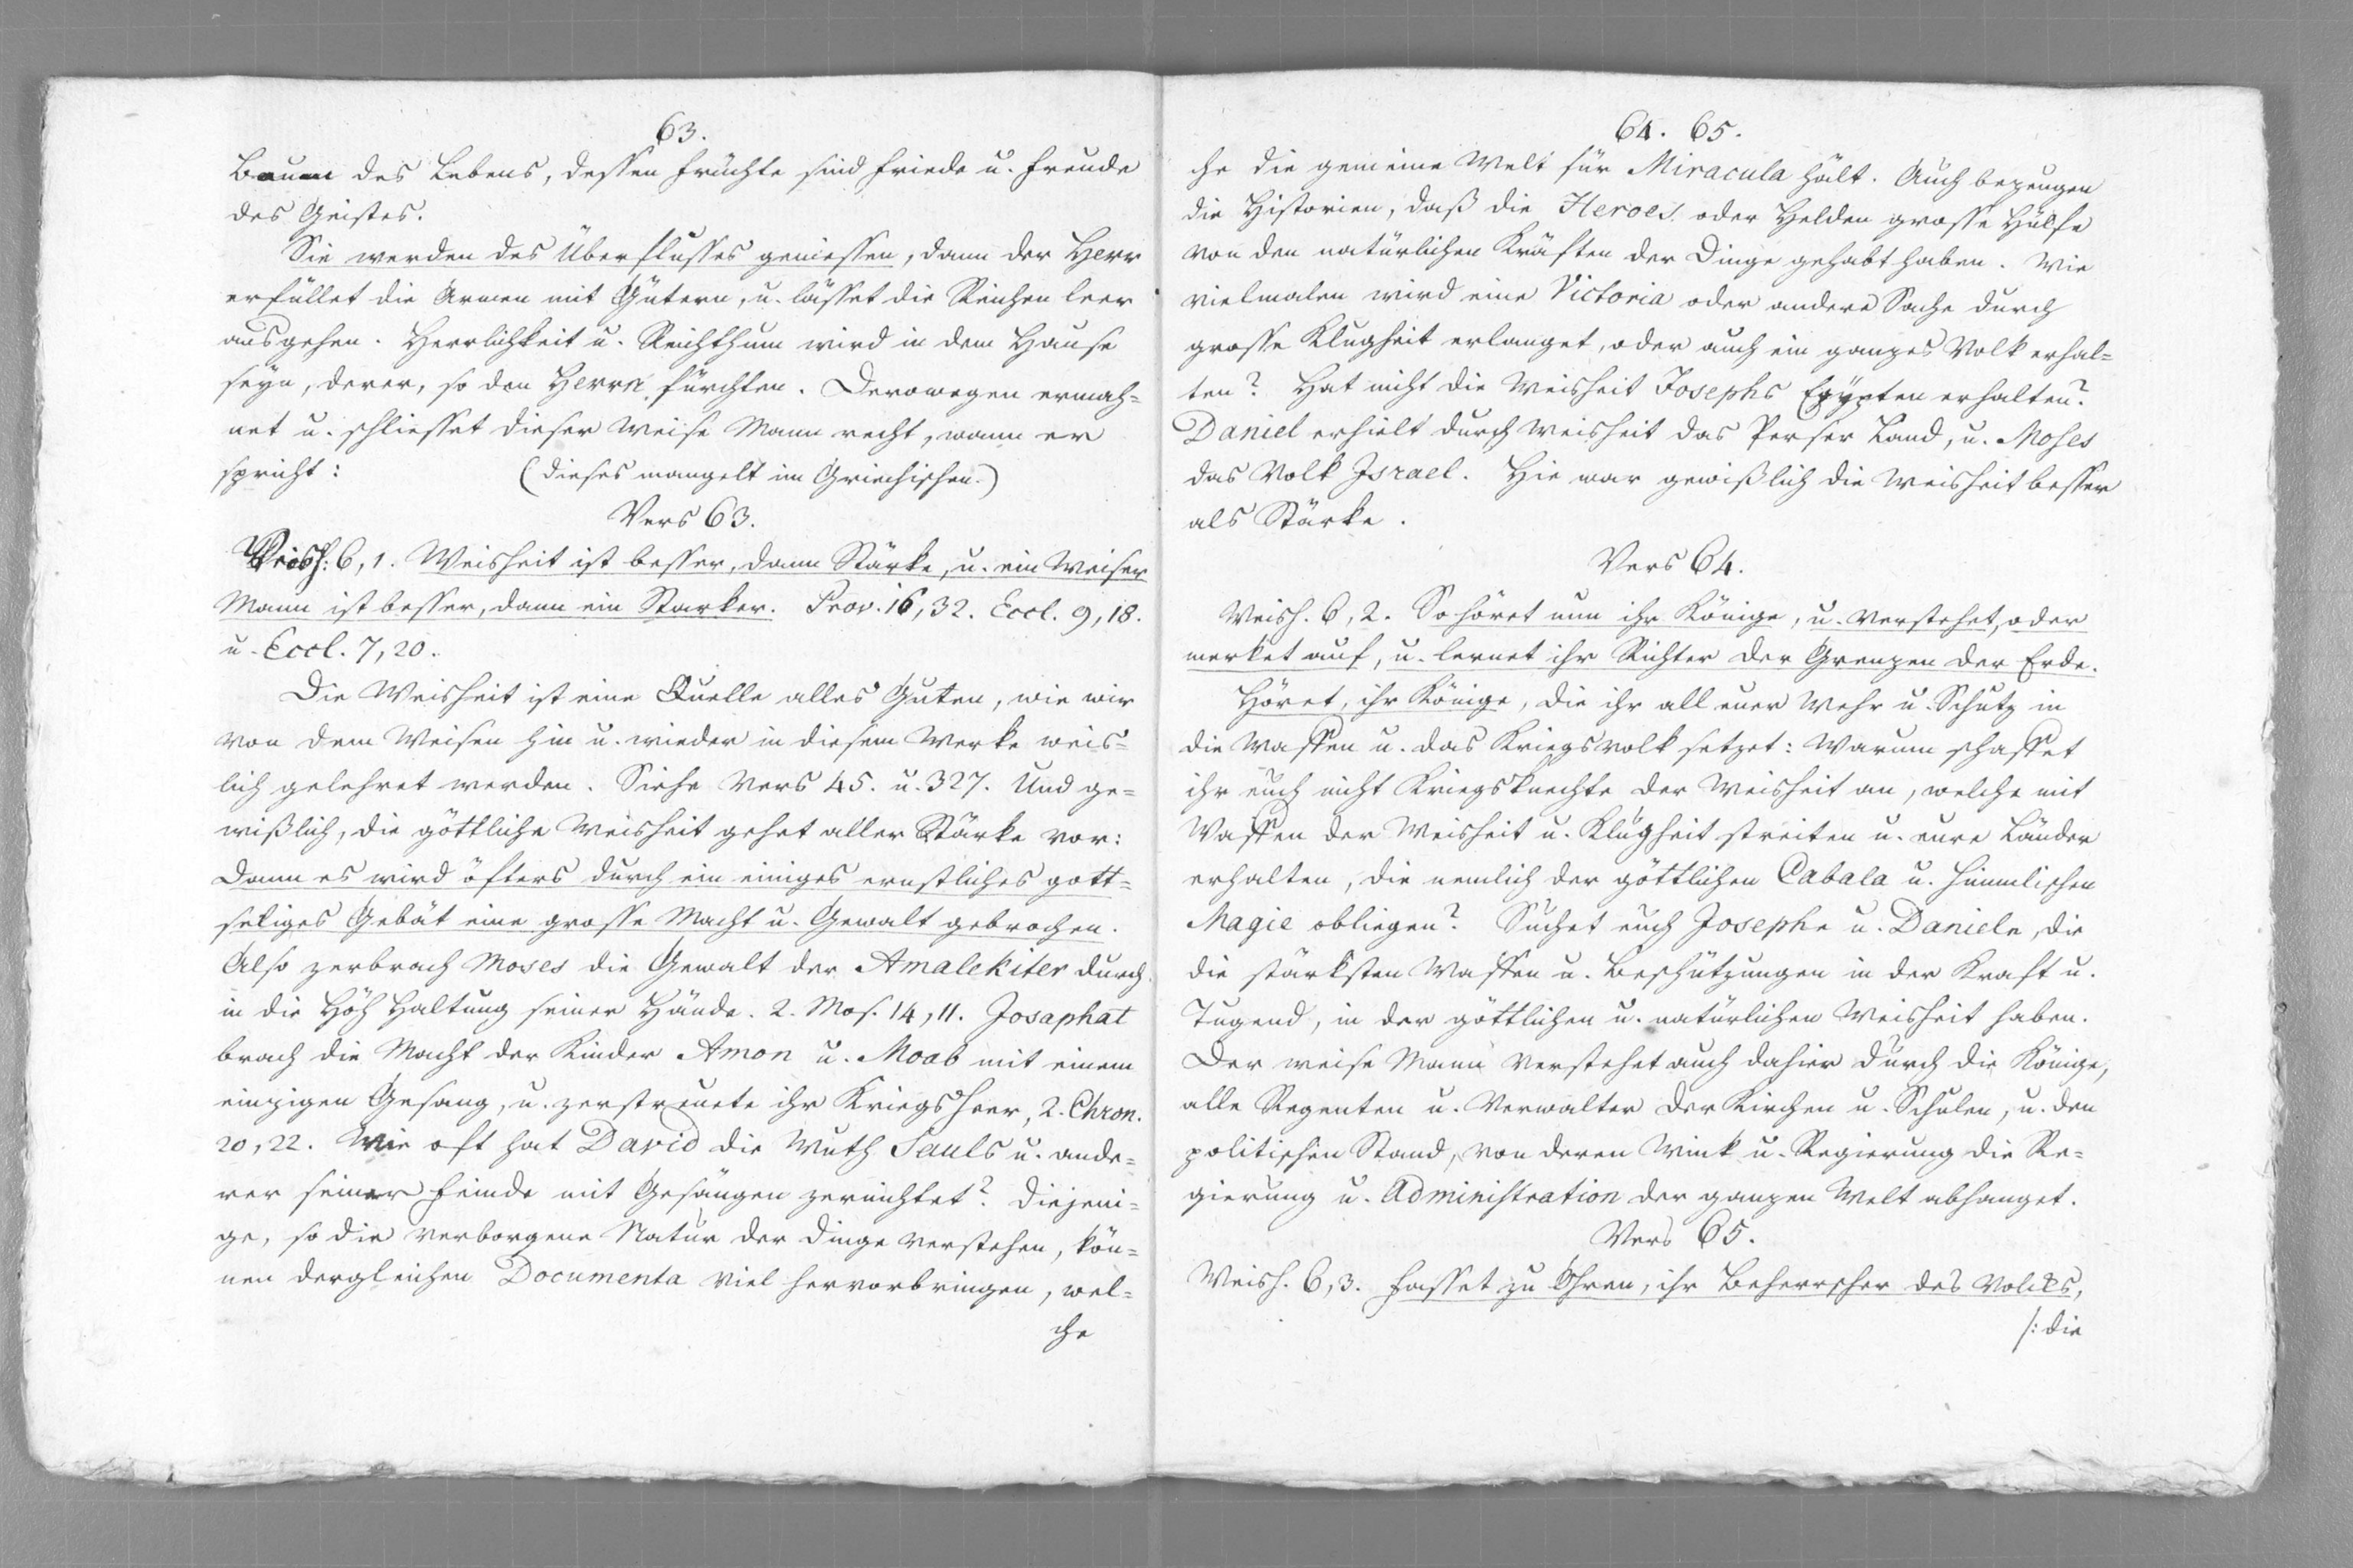 63.
Baum des Lebens, dessen Früchte sind Friede u. Freude
des Geistes.
Sie werden des Überflusses geniessen, dann der Herr
erfüllet die Armen mit Gütern, u. lässet die Reichen leer
ausgehen. Herrlichkeit u. Reichthum wird in dem Hause
seyn, derer, so den Herrn fürchten. Derowegen ermah=
net u. schliesset dieser weise Mann recht, wann er
spricht: (dieses mangelt im Griechischen.)
Vers 63.
Weish: 6, 1. Weisheit ist besser, dann Stärke, u. ein weiser
Mann ist besser, dann ein Starker. Prov. 16, 32. Eccl. 9, 18.
u. Eccl. 7, 20.
Die Weisheit ist eine Quelle alles Guten, wie wir
von dem Weisen hin u. wieder in diesem Werke weis=
lich gelehret werden. Siehe Vers 45. u. 327. Und ge=
wißlich, die göttliche Weisheit gehet aller Stärke vor:
Dann es wird öfters durch ein einiges ernstliches gott=
seliges Gebät eine grosse Macht u. Gewalt gebrochen.
Also zerbrach Moses die Gewalt der Amalekiter durch
in die Höh Haltung seiner Hände. 2. Mos. 14, 11. Josaphat
brach die Macht der Kinder Amon u. Moab mit einem
einzigen Gesang, u. zerstreuete ihr Kriegsheer, 2. Chron.
20, 22. Wie oft hat David die Wuth Sauls u. ande=
rer seiner Feinde mit Gesängen zernichtet? Diejeni=
ge, so die verborgene Natur der Dinge verstehen, kön=
nen dergleichen Documenta viel hervorbringen, wel=
che
64. 65.
che die gemeine Welt für Miracula hält. Auch bezeugen
die Historien, daß die Heroes oder Helden grosse Hülfe
von den natürlichen Kräften der Dinge gehabt haben. Wie
vielmalen wird eine Victoria oder andere Sache durch
grosse Klugheit erlanget, oder auch ein ganzes Volk erhal=
ten? Hat nicht die Weisheit Josephs Egypten erhalten?
Daniel erhielt durch Weisheit das Perser Land, u. Moses
das Volk Israel. Hie war gewißlich die Weisheit besser
als Stärke.
Vers 64.
Weish. 6, 2. So höret nun ihr Könige, u. verstehet, oder
merket auf, u. lernet ihr Richter der Grenzen der Erde.
Höret, ihr Könige, die ihr all euer Wehr u. Schutz in
die Waffen u. das Kriegsvolk setzet: Warum schaffet
ihr euch nicht Kriegsknechte der Weisheit an, welche mit
Waffen der Weisheit u. Klugheit streiten u. eure Länder
erhalten, die nemlich der göttlichen Cabala u. himmlischen
Magie obliegen? Suchet euch Josephe u. Daniele, die
die stärksten Waffen u. Beschützungen in der Kraft u.
Tugend, in der göttlichen u. natürlichen Weisheit haben.
Der weise Mann verstehet auch dahier durch die Könige,
alle Regenten u. Verwalter der Kirchen u. Schulen, u. den
politischen Stand, von deren Wink u. Regierung die Re=
gierung u. Administration der ganzen Welt abhanget.
Vers 65.
Weish. 6, 3. Fasset zu Ohren, ihr Beherrscher des Volkes,
/: die